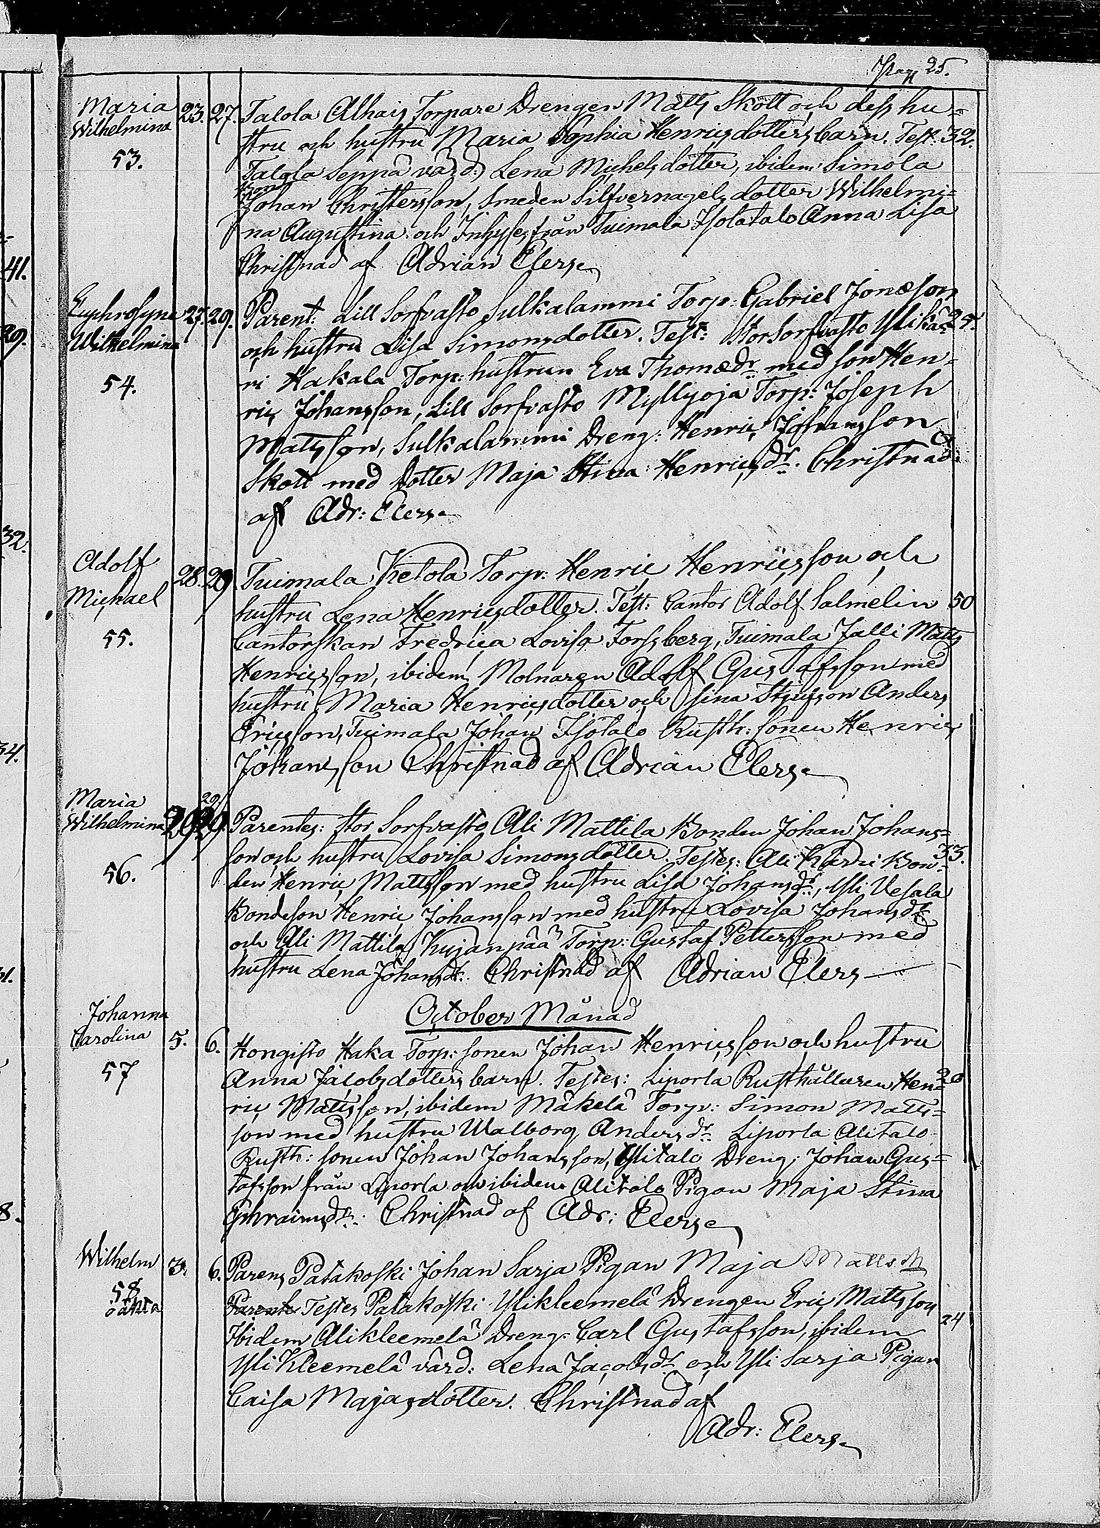 Pag 25.
Maria 23. 27. Talola Alhais Torpare Drengen Matts Skott och dess hu=
Wilhelmina stru och hustru Maria Sophia Henricsdotters barn. Test: 32.
53. Talola Seppä värd: Lena Michelsdotter, ibidem Simola
Johan Christersson, Smeden Silfvernagels dotter Wilhelmi=
na Augustina och Inhyses från Tuimala Isotalo Anna Lisa
Christnad af Adrian Elers
Euphrosyne 27. 29. Parent: Lill Sorfvasto Sulkalammi Torp: Gabriel Jonæson
Wilhelmina och hustru Lisa Simonsdotter. Test: Stor Sorfvasto Yli Ka=
54. ri Hakala Torp: hustrun Eva Thomædr med son Hen=
ric Johansson, Lill Sorfvasto Myllyoja Torp: Joseph
Mattsson, Sulkalammi Dreng: Henric Johansson
Skott med Dotter Maja Stina Henricsdr. Christnad
af Adr: Elers
Adolf 28. 29 Tuimala Ketola Torp: Henric Henricsson och
Michael hustru Lena Henricsdotter. Test: Cantor Adolf Salmelin 50
55. Cantorskan Fredrica Lovisa Forssberg, Tuimala Jalli Matts
Henricsson, ibidem Molnaren Adolf Gustafsson med
hustru Maria Henricsdotter och sina Stjufson Anders
Ericsson, Tuimala Johan Isotalo Rusth: Sonen Henric
Johansson Christnad af Adrian Elers
Maria 29 29 Parentes: Stor Sorfvasto Ali Mattila Bonden Johan Johans=
Wilhelmina son och hustru Lovisa Simonsdotter. Testes: Ali Kari Bon= 33.
56. den Henric Mattsson med hustru Lisa Johansdr, Yli Vesala
Bondeson Henric Johansson med hustru Lovisa Johansdr
och Ali Mattila Kujanpää Torp: Gustaf Pettersson med
hustru Lena Johansdr. Christnad af Adrian Elers
October Månad
Johanna
Carolina 5. 6. Hongisto Haka Torp: Sonen Johan Henricsson och hustru
57 Anna Jacobsdotters barn. Testes: Liporla Rusthållaren Hen=
ric Mattsson, ibidem Mäkelä Torp: Simon Matts=
son med hustru Walborg Andersdr. Liporla Alitalo
Rusth: Sonen Johan Johansson, Ylitalo Dreng: Johan Gus=
tafsson från Liporla och ibidem Alitalo Pigan Maja Stina
Ephraimsdr: Christnad af Adr: Elers
Wilhelm 3. 6. Parens Palakoski Johan Sarja Pigan Maja Mattsdr
58 Testes Palakoski Ylikleemelä Drengen Eric Mattsson
oäkta Ibidem Alikleemelä Dreng: Carl Gustafsson, ibidem 24
Yli Kleemelä värd: Lena Jacobsdr och Yli Sarja Pigan
Caisa Majasdotter. Christnad af
Adr: Elers